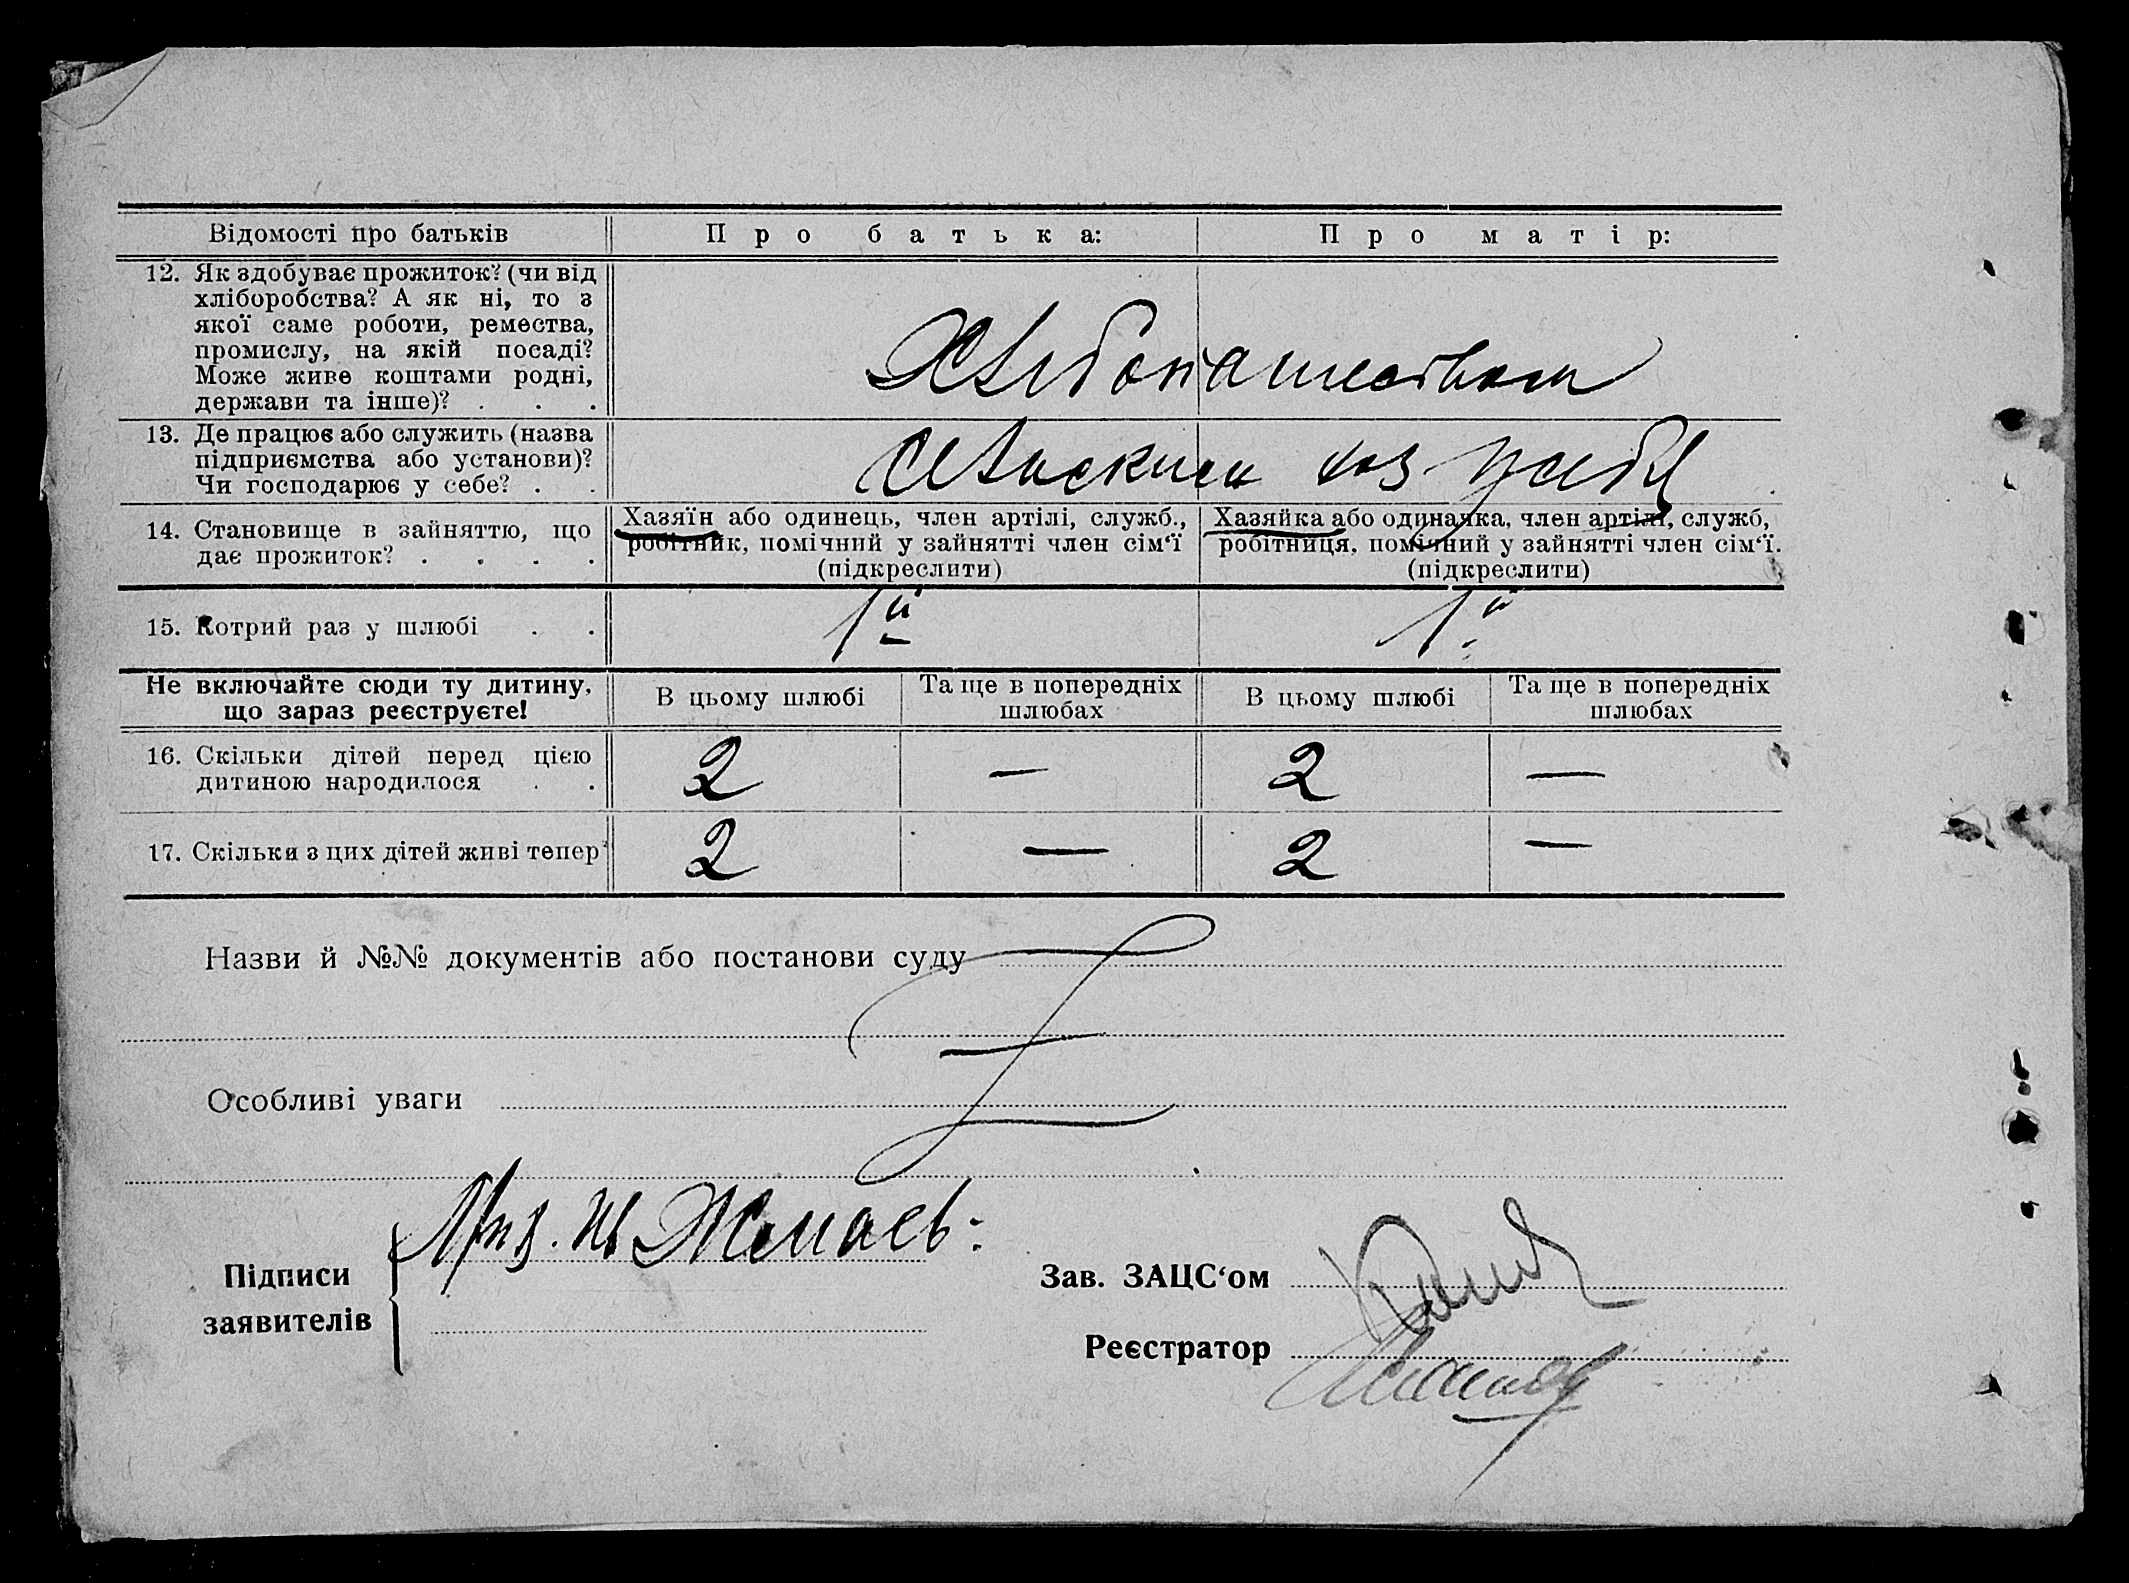 Відомості про батьків
Про батька:
Про матір:
12. Як здобуває прожиток? (чи від
хліборобства? А як ні, то з
якої саме роботи, ремества,
промислу, на якій посаді?
Може живе коштами родні,
держави та інше)? . . .
Хлібопашеством
13. Де працює або служить (назва
підприємства або установи)?
Чи господарює у себе? . .
у себя
14. Становище в зайняттю, що
дає прожиток? . . . .
Хазяїн або одинець, член артілі, служб.,
робітник, помічний у зайнятті член сім‘ї
(підкреслити)
Хазяйка або одиначка, член артілі, служб,
робітниця, помічний у зайнятті член сім‘ї.
(підкреслити)
15. Котрий раз у шлюбі . .
1й
1й
Не включайте сюди ту дитину,
що зараз реєструєте!
В цьому шлюбі
Та ще в попередніх
шлюбах
В цьому шлюбі
Та ще в попередніх
шлюбах
16. Скільки дітей перед цією
дитиною народилося . .
2 — 2 —
17. Скільки з цих дітей живі тепер?
2 — 2 —
Назви й №№ документів або постанови суду
Особливі уваги
Підписи
заявителів
Зав. ЗАЦС‘ом
Реєстратор